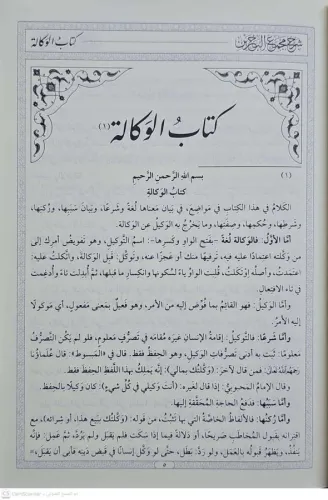 شرح مجمع البحرين
كتاب الوكالة
كتابُ الوَكالة (١)
(١) بسم الله الرَّحمنِ الرَّحيمِ
كتاب الوَكالةِ
الكَلامُ في هذا الكِتابِ في مَواضِعَ، في بيان مَعناها لُغةً وشَرعًا، وبَيان سَبَبِها، ورُكنِها،
وشَرطِها، وحُكمِها، وصِفَتِها، وما يَخرُجُ به الوَكيلُ عن الوَكالة.
أمّا الأوَّلُ: فالوَكالةُ لُغةً –بفتحِ الواوِ وكَسرِها–: اسمُ التَّوكيلِ، وهو تفويضُ أمرِك إلى
من وكَّلتَه اعتِمادًا عليه فيه، ترفيهًا منك أو عَجزًا عنه، وتوكَّلَ: قَبِلَ الوَكالةَ، واتَّكلتُ عليه:
اعتمدتُ، وأصلُه اِوْتكلتُ، قُلِبت الواوُ ياءً لسُكونها وانكِسارِ ما قبلَها، ثمَّ أُبدلت تاءً وأُدغِمت
في تاء الافتِعال.
وأمّا الوَكيلُ: فهو القائمُ بما فُوِّضَ إليه من الأمر، وهو فَعيلٌ بمعنى مَفعول، أي مَوكولًا
إليه الأمرُ.
وأمّا شَرعًا: فالتَّوكيلُ: إقامةُ الإنسانِ غيرَه مُقامَه في تَصرُّفٍ مَعلومٍ، فلو لم يكن التَّصرُّفُ
مَعلومًا: ثبت به أدنى تَصرُّفاتِ الوَكيلِ، وهو الحِفظُ فقط. قال عُلَماؤُنا
رحمهم الله تعالى: فمن قال لآخرَ: (وكَّلتُك بمالي): إنَّه يَملِكُ بهذا اللَّفظِ الحِفظَ فقط.
وقال الإمام المَحبوبيُّ: إذا قال لغيره: (أنت وَكيلي في كُلِّ شيءٍ): كان وَكيلًا بالحِفظِ.
وأمّا سَبَبُها: فدَفعُ الحاجةِ المُحقَّقةِ إليها.
وأمّا رُكنُها: فالألفاظُ الخاصَّةُ الَّتي بها تَثبُتُ، من قوله: (وكَّلتُك ببَيعِ هذا، أو شِرائه)، مع
اقترانه بقَبولِ المُخاطَبِ صَريحًا، أو دَلالةً فيما إذا سَكت فلم يَقبَل ولم يَرُدَّ، ثمَّ عَمِلَ: فإنَّه
يَنفُذُ، ويَظهَرُ قَبولُه بالعَمَلِ، ولو ردَّ: بَطَلَ، حتَّى لو وكَّلَ إنسانًا في قَبضِ دَينِه فأبى أن يَقبَلَ،
٥
CamScanner